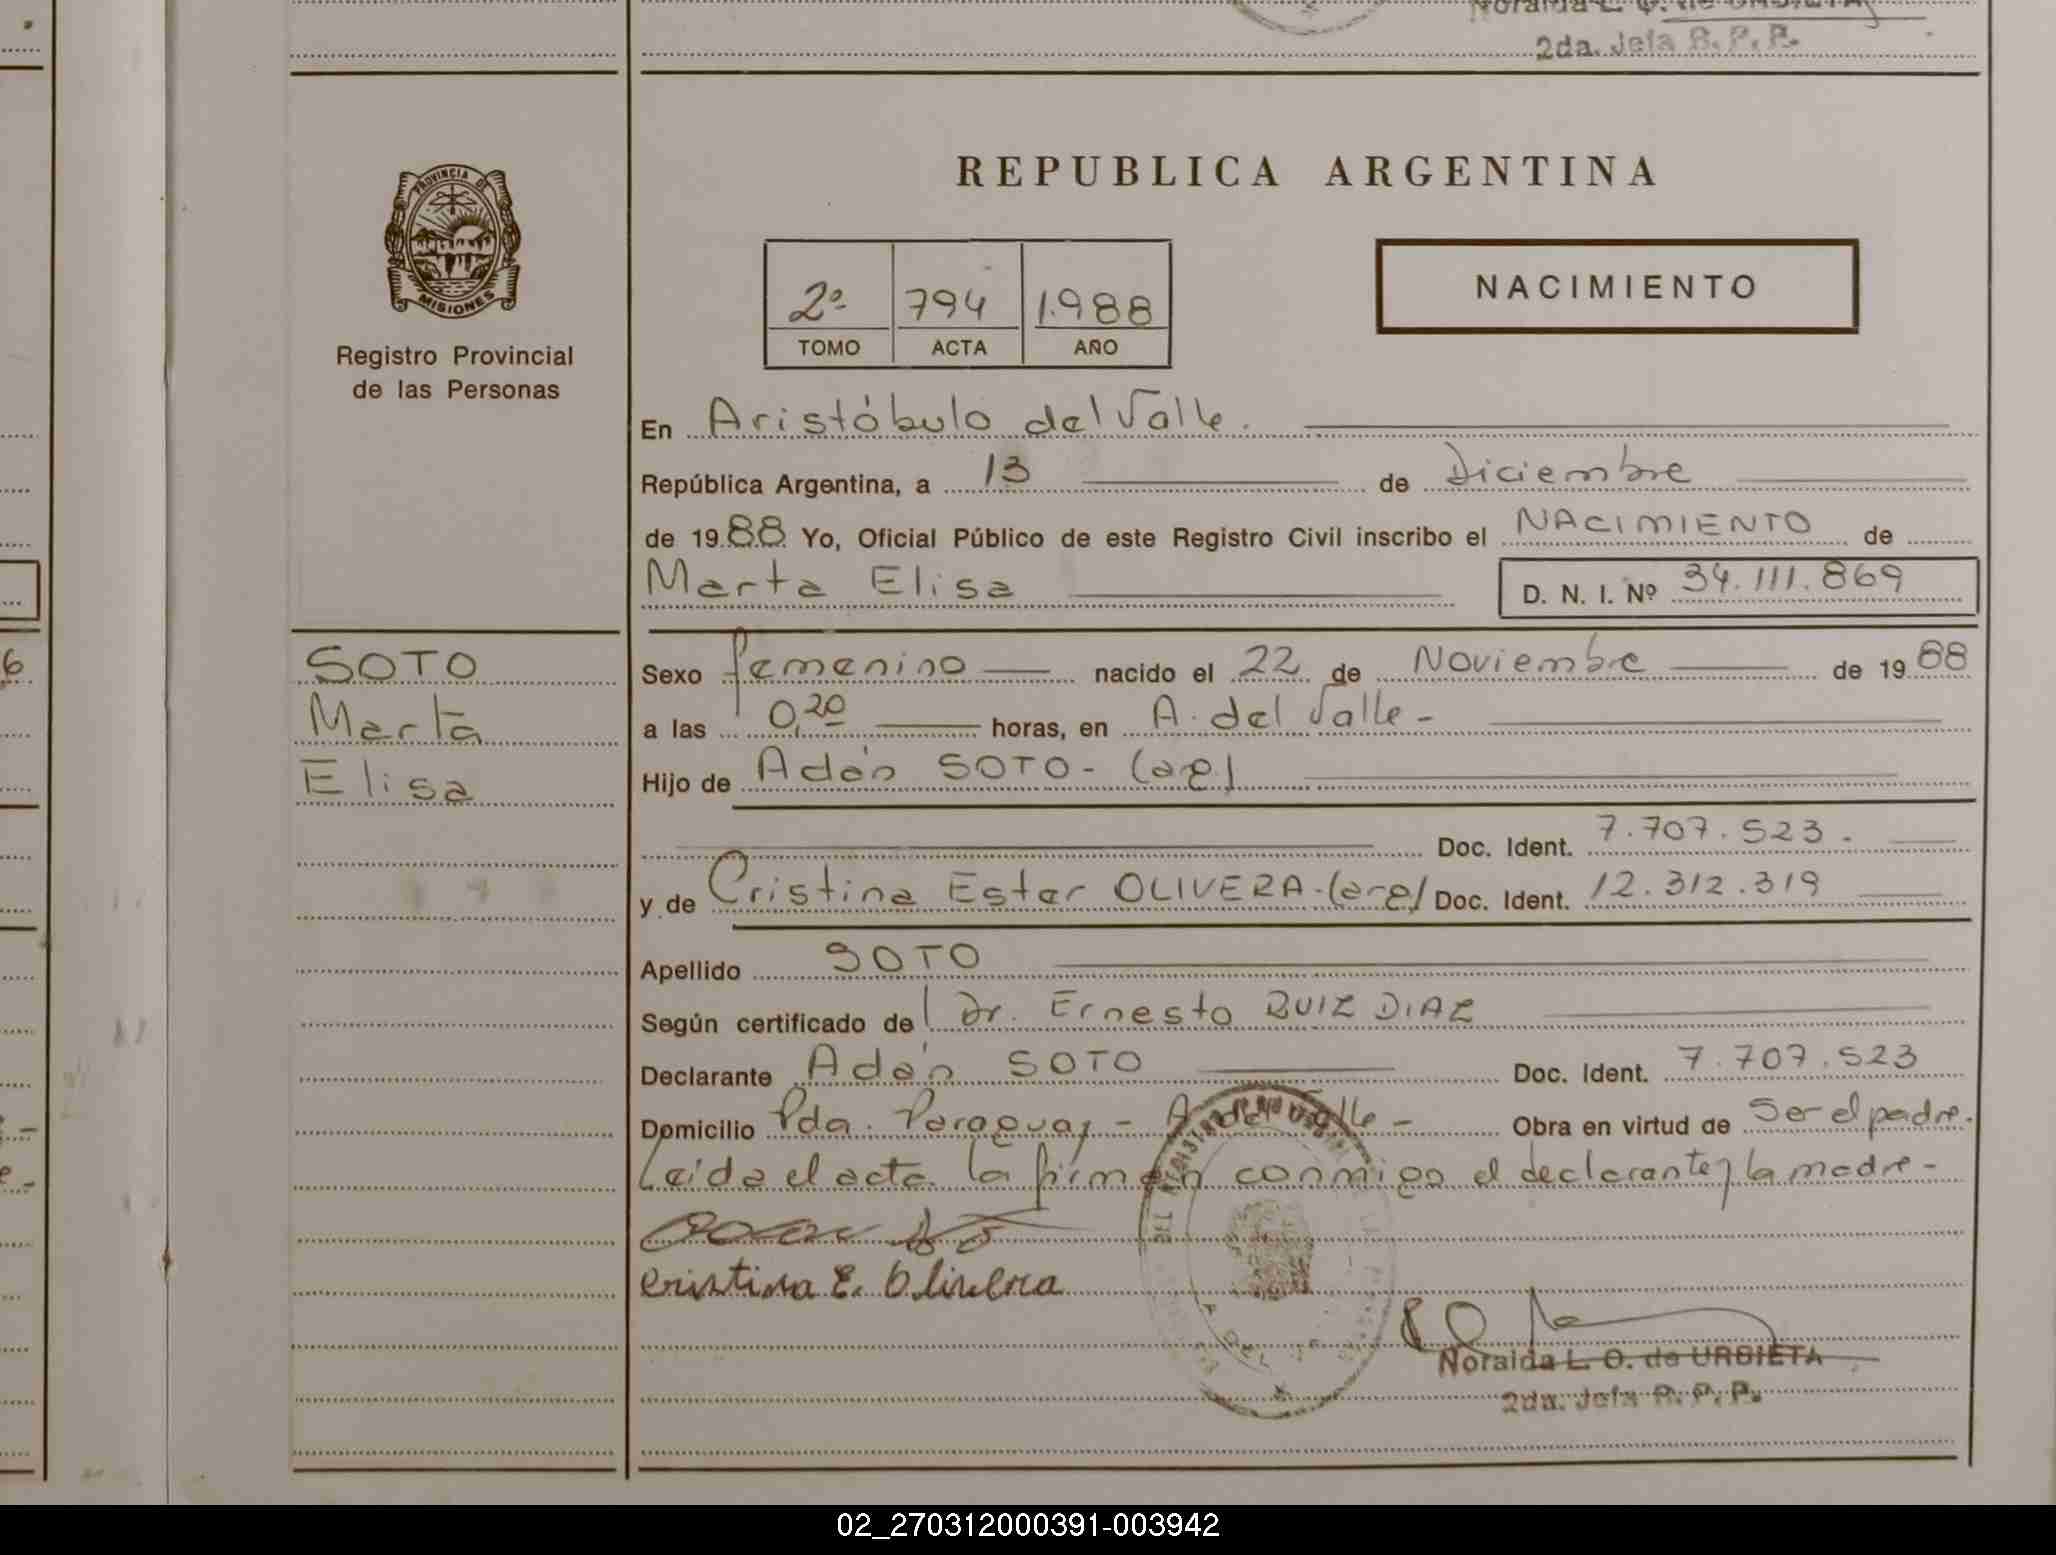 Noraida L. O. de URBIETA
2da. Jefa R. P. P.
PROVINCIA DE
MISIONES
Registro Provincial
de las Personas
REPUBLICA ARGENTINA
2º 794 1.988
TOMO ACTA AÑO
NACIMIENTO
En Aristóbulo del Valle.
República Argentina, a 13 de Diciembre
de 1988 Yo, Oficial Público de este Registro Civil inscribo el NACIMIENTO de
Marta Elisa D. N. I. Nº 34.111.869
SOTO
Marta
Elisa
Sexo femenino nacido el 22 de Noviembre de 1988
a las 0,20 horas, en A. del Valle-
Hijo de Adán SOTO- (arg)
Doc. Ident. 7.707.523.
y de Cristina Ester OLIVERA-(arg) Doc. Ident. 12.312.319
Apellido SOTO
Según certificado del Dr. Ernesto RUIZ DIAZ
Declarante Adán SOTO Doc. Ident. 7.707.523
Domicilio Pda. Paraguay - A. del Valle - Obra en virtud de Ser el padre.
Leída el acta la firman conmigo el declarante y la madre-
Cristina E. Olivera
Noraida L. O. de URBIETA
2da. Jefa R. P. P.
02_270312000391-003942